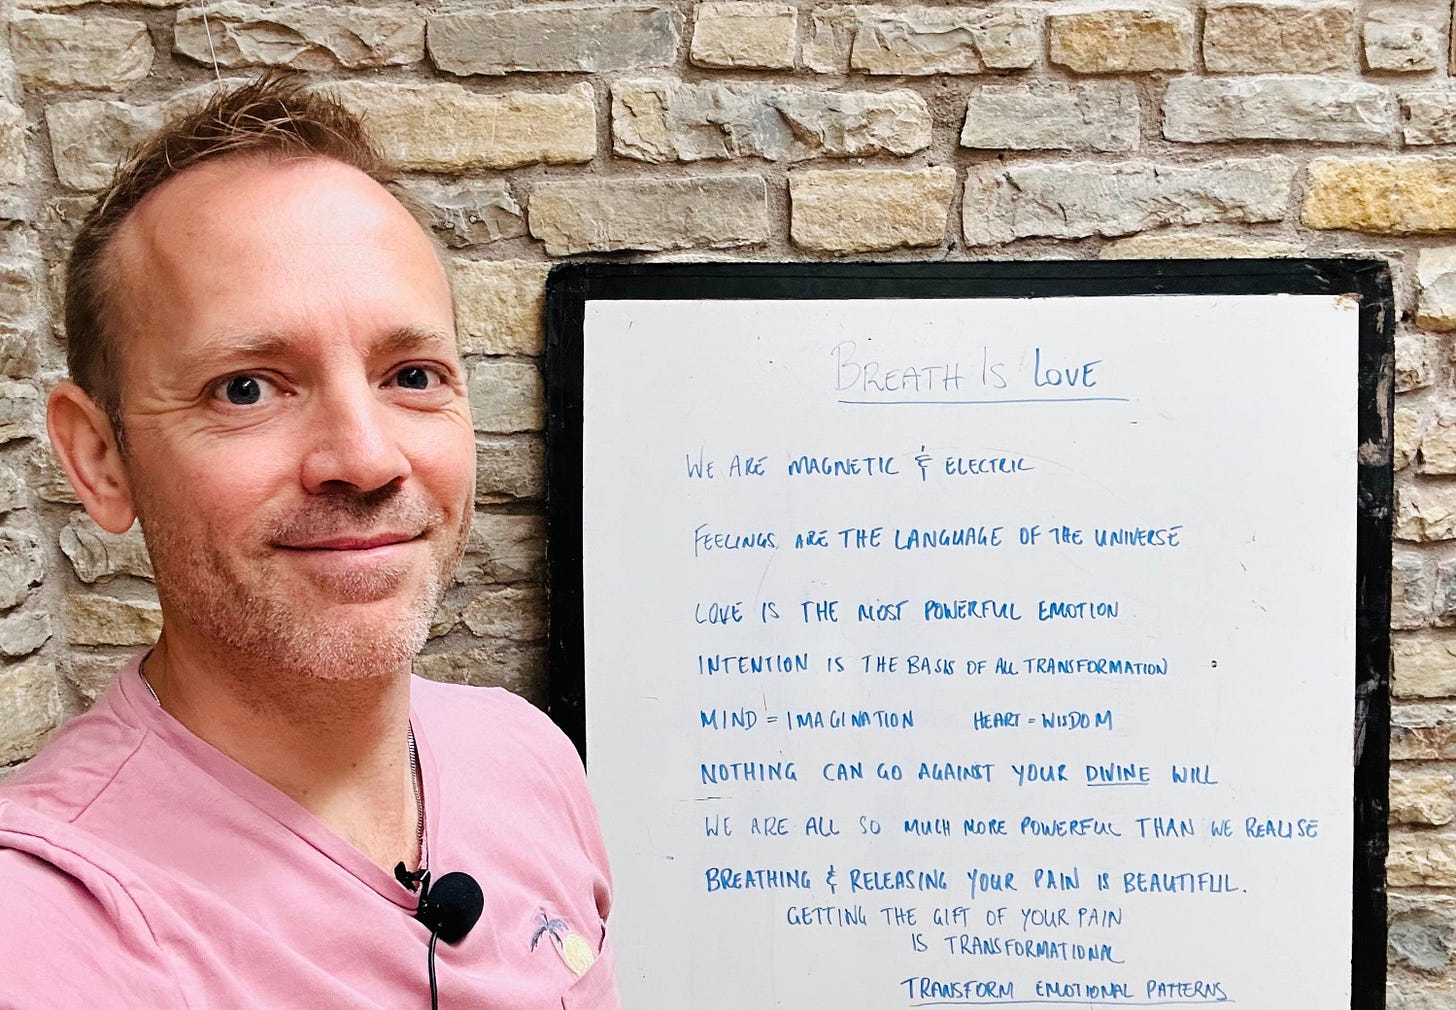 BREATH IS LOVE
WE ARE MAGNETIC & ELECTRIC
FEELINGS ARE THE LANGUAGE OF THE UNIVERSE
LOVE IS THE MOST POWERFUL EMOTION
INTENTION IS THE BASIS OF ALL TRANSFORMATION
MIND = IMAGINATION HEART = WISDOM
NOTHING CAN GO AGAINST YOUR DIVINE WILL
WE ARE ALL SO MUCH MORE POWERFUL THAN WE REALISE
BREATHING & RELEASING YOUR PAIN IS BEAUTIFUL.
GETTING THE GIFT OF YOUR PAIN
IS TRANSFORMATIONAL
TRANSFORM EMOTIONAL PATTERNS